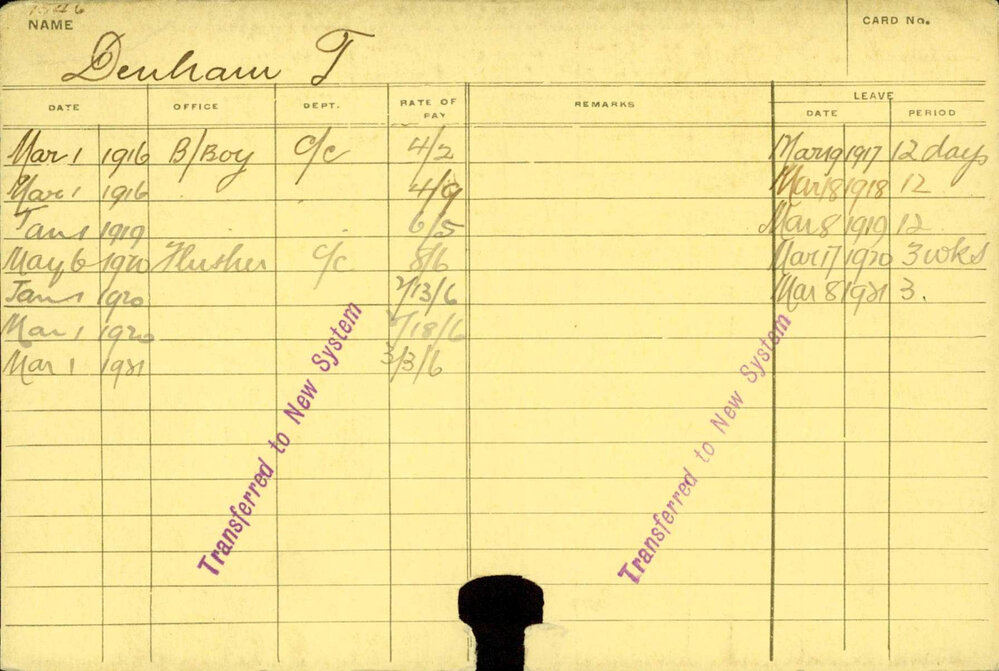 1546
NAME
CARD No.
Denham T
DATE OFFICE DEPT. RATE OF PAY REMARKS LEAVE
DATE PERIOD
Mar 1 1916 B/Boy C/c 4/2 Mar 19 1917 12 days
Mar 1 1916 4/9 Mar 18 1918 12
Jan 1 1919 6/5 Mar 8 1919 12
May 6 1920 Flusher C/c 8/6 Mar 17 1920 3 wks
Jan 1 1920 /13/6 Mar 8 1921 3.
Mar 1 1920 /18/6
Mar 1 1921 3/3/6
Transferred to New System
Transferred to New System